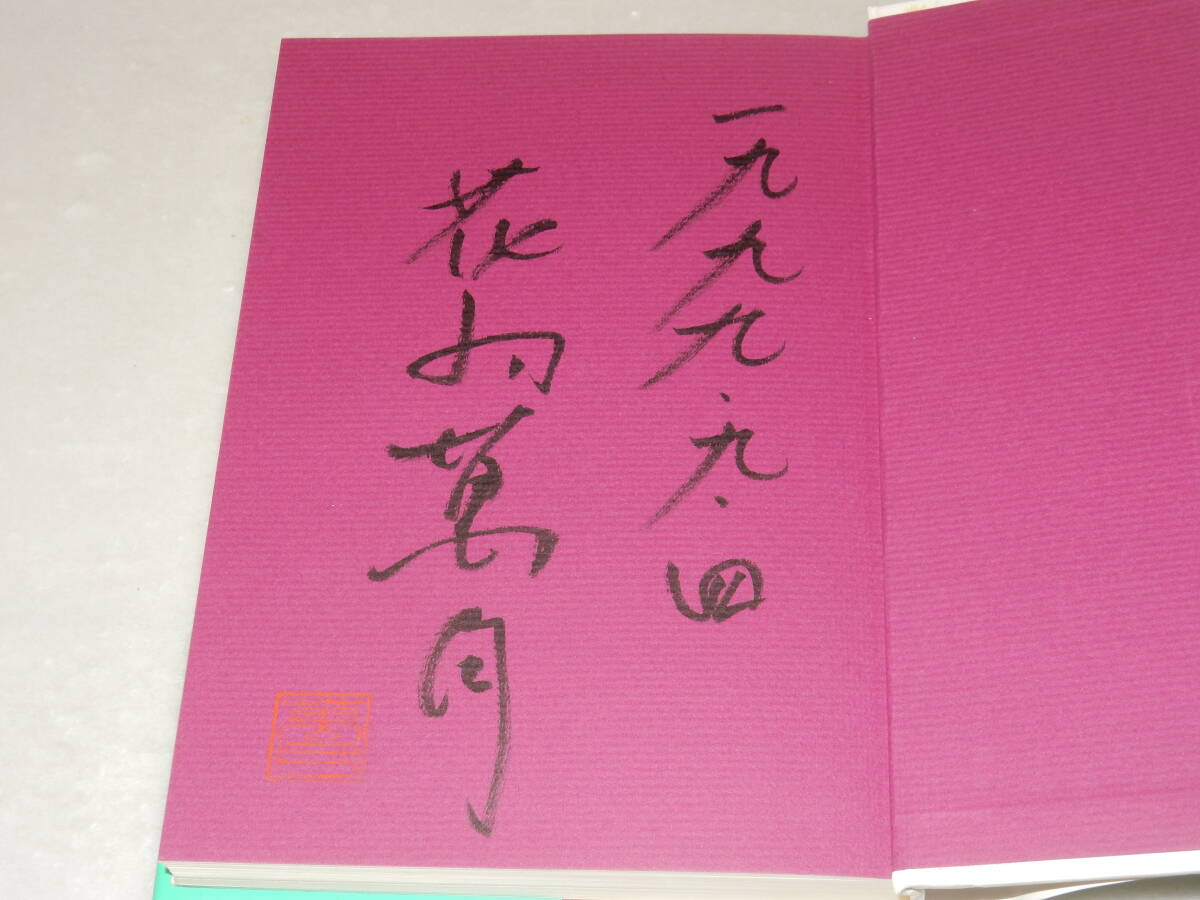 一九九九・九・四
花村萬月